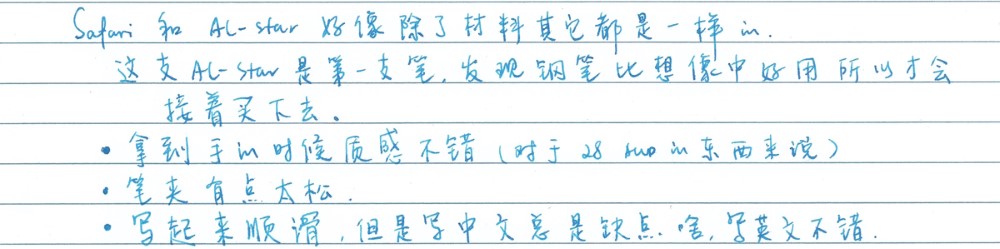 Safari 和 AL-star 好像除了材料其它都是一样的.
这支 AL-star 是第一支笔, 发现钢笔比想像中好用所以才会
接着买下去。
• 拿到手的时候质感不错 (对于 28 的东西来说)
• 笔夹有点太松.
• 写起来顺滑, 但是写中文总是缺点啥, 写英文不错.